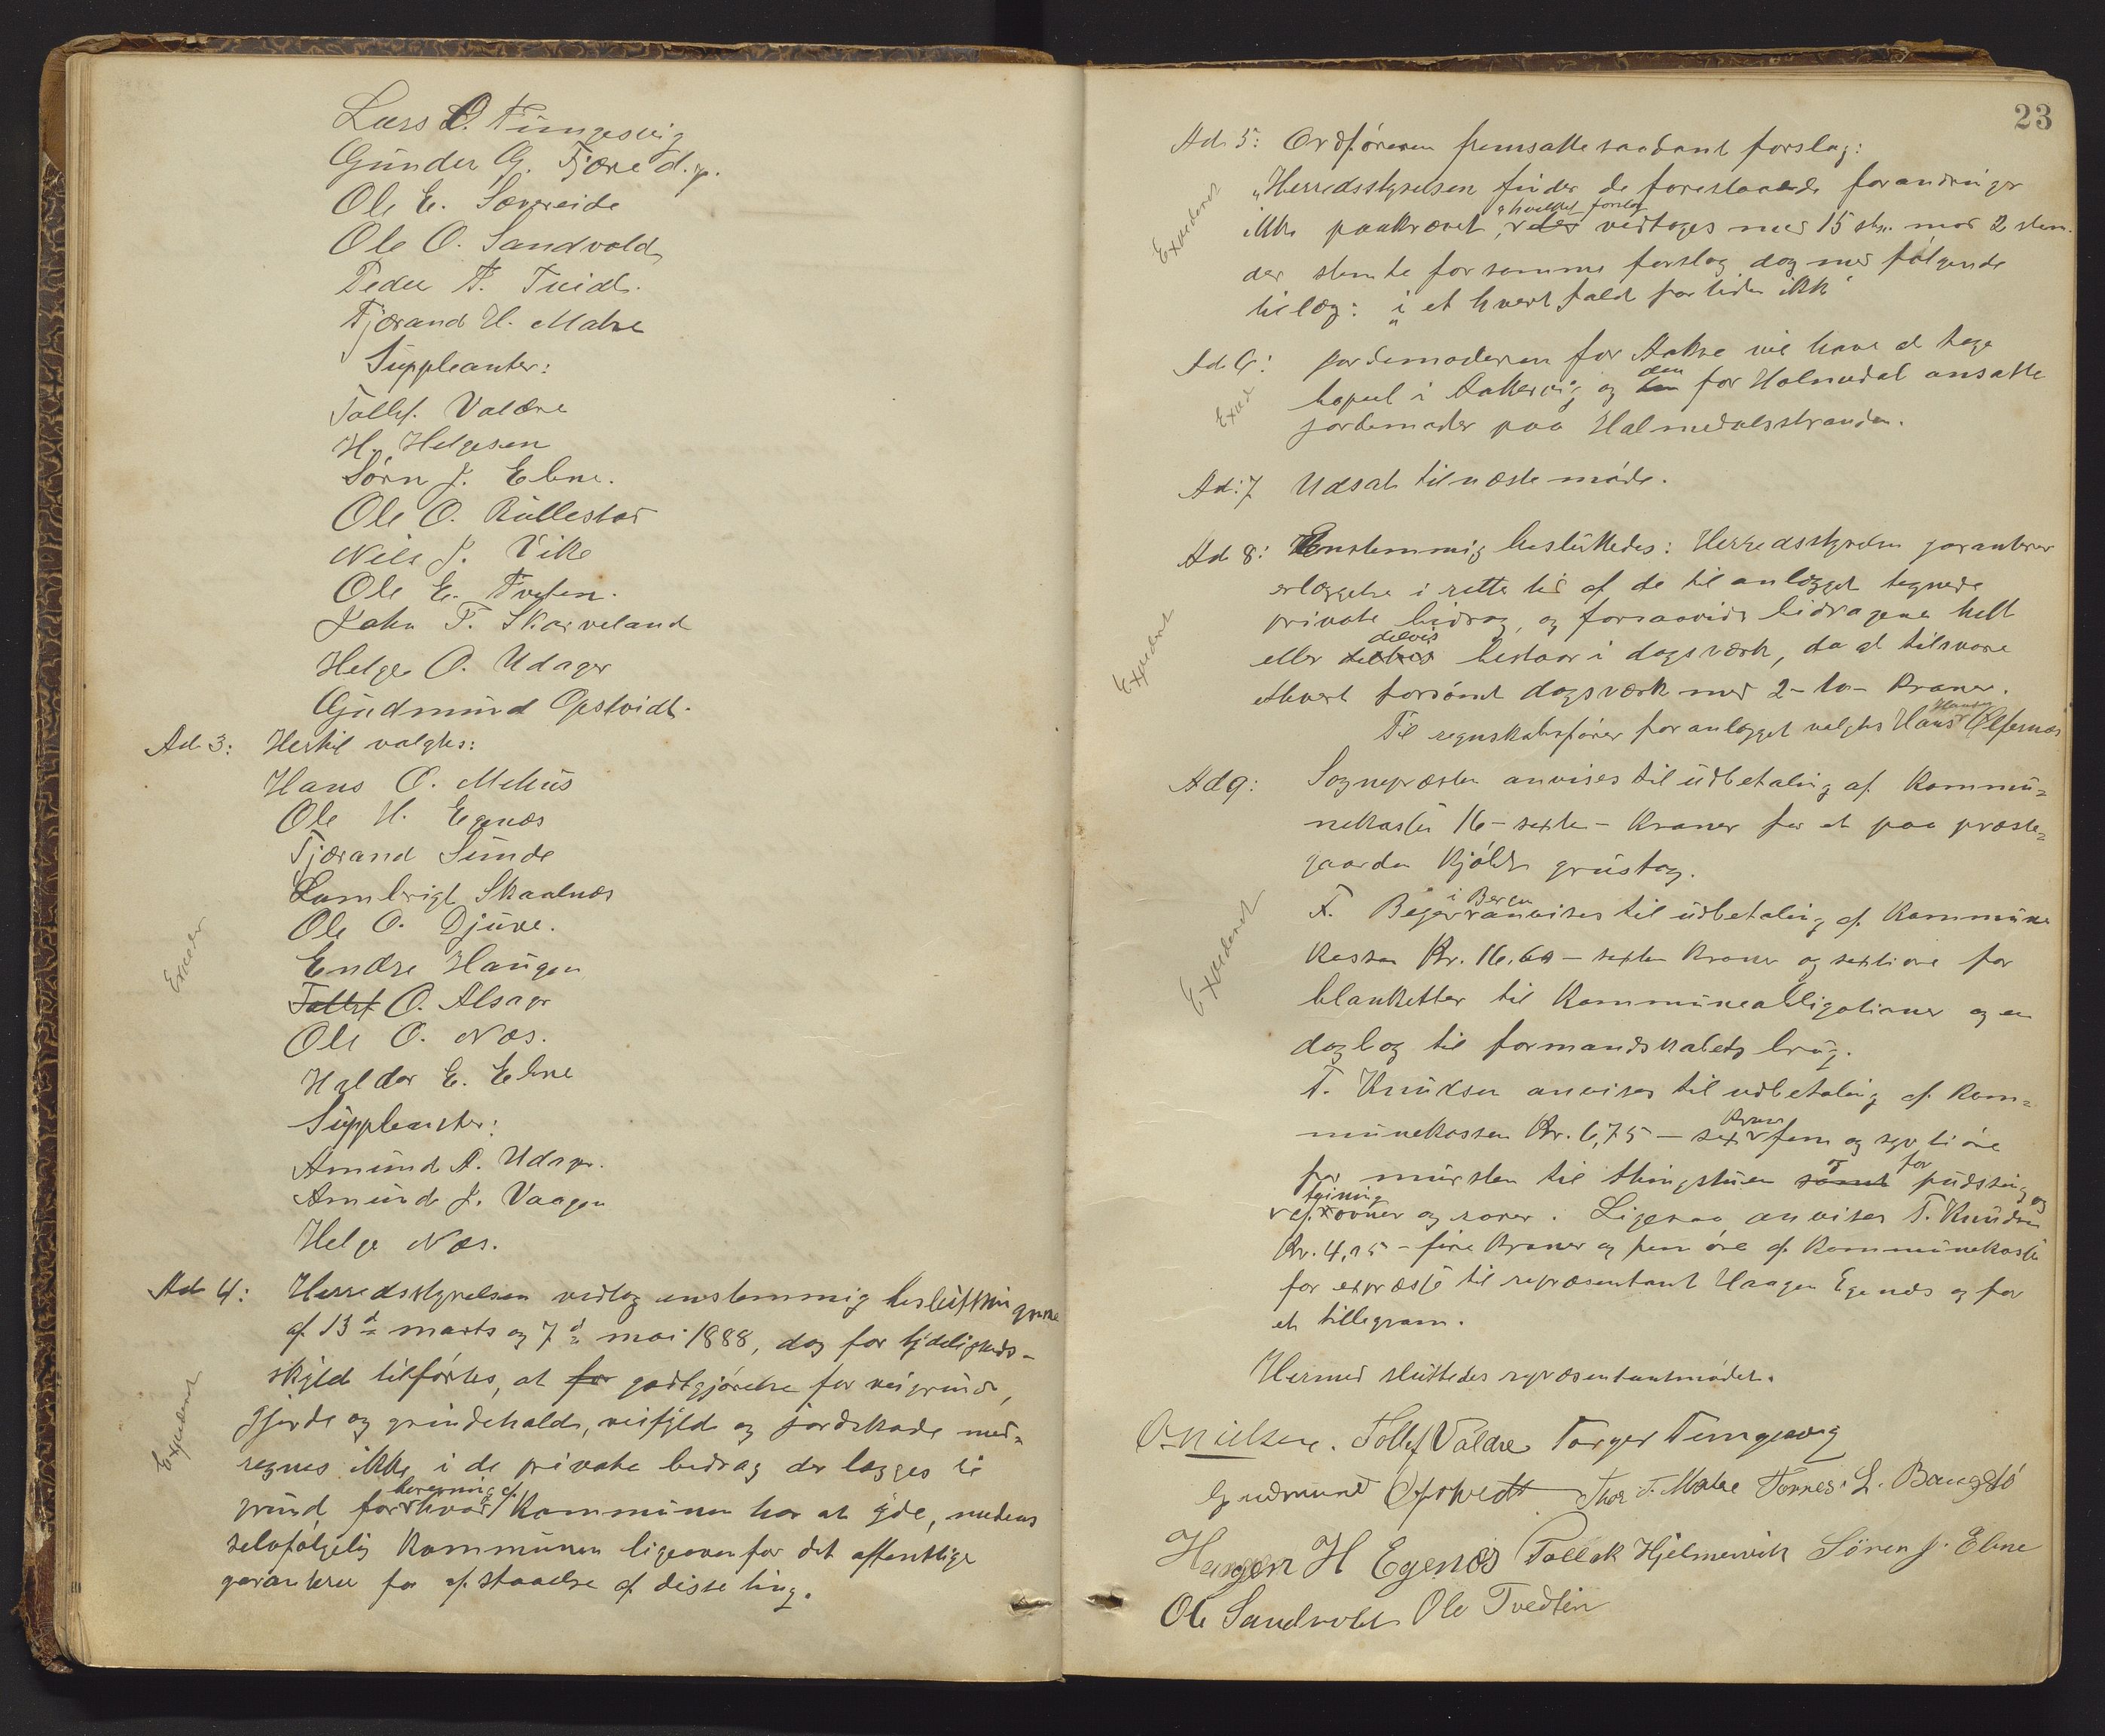 Lars O. Tungesvig
Gunder G. Fjære d.y.
Ole E. Sævereide
Ole O. Sandvold
Peder A. Tveidt.
Tjærand H. Matre
Suppleanter:
Tollef. Valdre
H. Helgesen
Sørn J. Ebne.
Ole O. Rullestad
Nils J. Vike
Ole E. Tveten.
John T. Skarveland
Helge O. Udager
Gudmund Opstvidt.
Ad 3: Hertil valgtes:
Hans O. Mehus
Ole H. Egenæs
Tjærand Sunde
Lambrigt Skaalnæs
Ole O. Djuve.
Endre Haugen
Tollef O. Alsager
Ole O. Næs.
Haldor E. Ebne
Suppleanter:
Amund A. Udager.
Amund J. Vaagen
Helge Næs.
Ad 4: Herredsstyrelsen vedtog enstemmig beslutningerne
af 13d marts og 7d mai 1888, dog for tydeligheds-
skyld tilføies, at for godtgjørelse for veigrund,
gjerde og grindehold, veifyld og jordskade med-
regnes ikke i de private bidrag der lægges til
grund for beregning af hvad Kommunen har at yde, medens
selvfølgelig Kommunen ligeoverfor det offentlige
garanterer for afstaaelse af disse ting.
Expederet
23
Ad 5: Ordføreren fremsatte saadant forslag:
"Herredsstyrelsen finder de foreslaaede forandringer
ikke paakrævet", hvilket forslag vedtoges med 15 stm. mod 2 stem.
der stemte for samme forslag dog med følgende
tilæg: "i et hvert fald for tiden ikke"
Expederet
Ad 6: Jordemoderen for Aakre vil have at tage
bopæl i Aakervig og den for Holmedal ansatte
jordemoder paa Holmedalsstranden.
Exped
Ad: 7 Udsat til næste møde.
Ad 8: Enstemmig besluttedes: Herredsstyrelsen garanterer
erlæggelse i rette tid af de til anlægget tegnede
private bidrag, og forsaavidt bidragene helt
eller delvis bestaar i dagsværk, da at tilsvare
ethvert forsømt dagsværk med 2 - to - Kroner.
Til regnskabsfører for anlægget valgtes Hans Hansen Ølfernæs
Expederet
Ad 9: Sognepræsten anvises til udbetaling af Kommu=
nekassen 16 - sexten - Kroner for et paa præste=
gaarden kjøbt grustag.
F. Beyer i Bergen anvises til udbetaling af Kommune
kassen Kr. 16,60 - sexten Kroner og sexti øre for
blanketter til Kommuneobligationer og en
dagbog til formandskabets brug.
T. Knudsen anvises til udbetaling af Kom=
munekassen Kr. 6,75 - sex Kroner fem og sytti øre
for mursten til thingstuen og for pudsning og
af ovner og rører. Ligesaa anvises T. Knudsen
Kr. 4,05 - fire Kroner og fem øre af Kommunekassen
for expresse til repræsentant Haagen Egenæs og for
et tillegram.
Expederet
Hermed sluttedes repræsentantmødet.
O. Nielsen. Tollef Valdre Torger Tungesvig
Gudmund Opstvedt Thor T. Matre Tønnes L. Baugstø
Haagen H Egenæs Tollak Hjelmervik Sören J. Ebne
Ole Sandvold Ole Tvedten